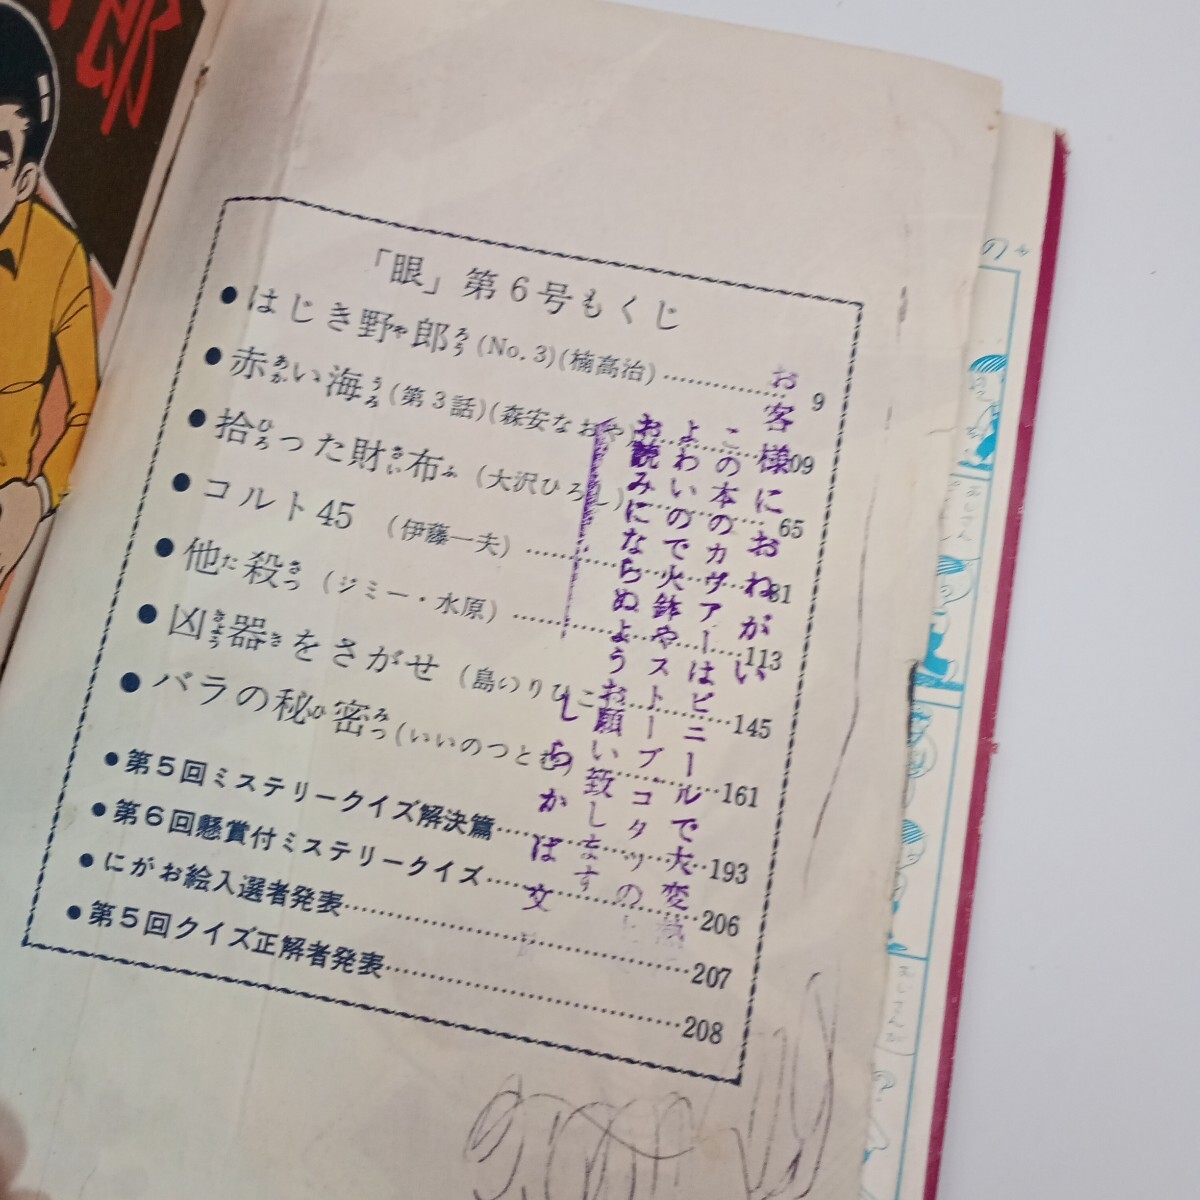 郎
「眼」第6号もくじ
●はじき野郎(No.3)(楠高治)……………9
●赤い海(第3話)(森安なおや)……09
●拾った財布(大沢ひろし)……65
●コルト45(伊藤一夫)……………81
●他殺(ジミー・水原)……………113
●凶器をさがせ(島いりひこ)……145
●バラの秘密(いいのつとむ)……161
●第5回ミステリークイズ解決篇……………193
●第6回懸賞付ミステリークイズ……………206
●にがお絵入選者発表……………207
●第5回クイズ正解者発表……………208
お客様におねがい
この本のカヴァーはビニールで大変熱
よわいので火鉢やストーブコタツの上
お読みにならぬようお願い致します
しらかば文
の